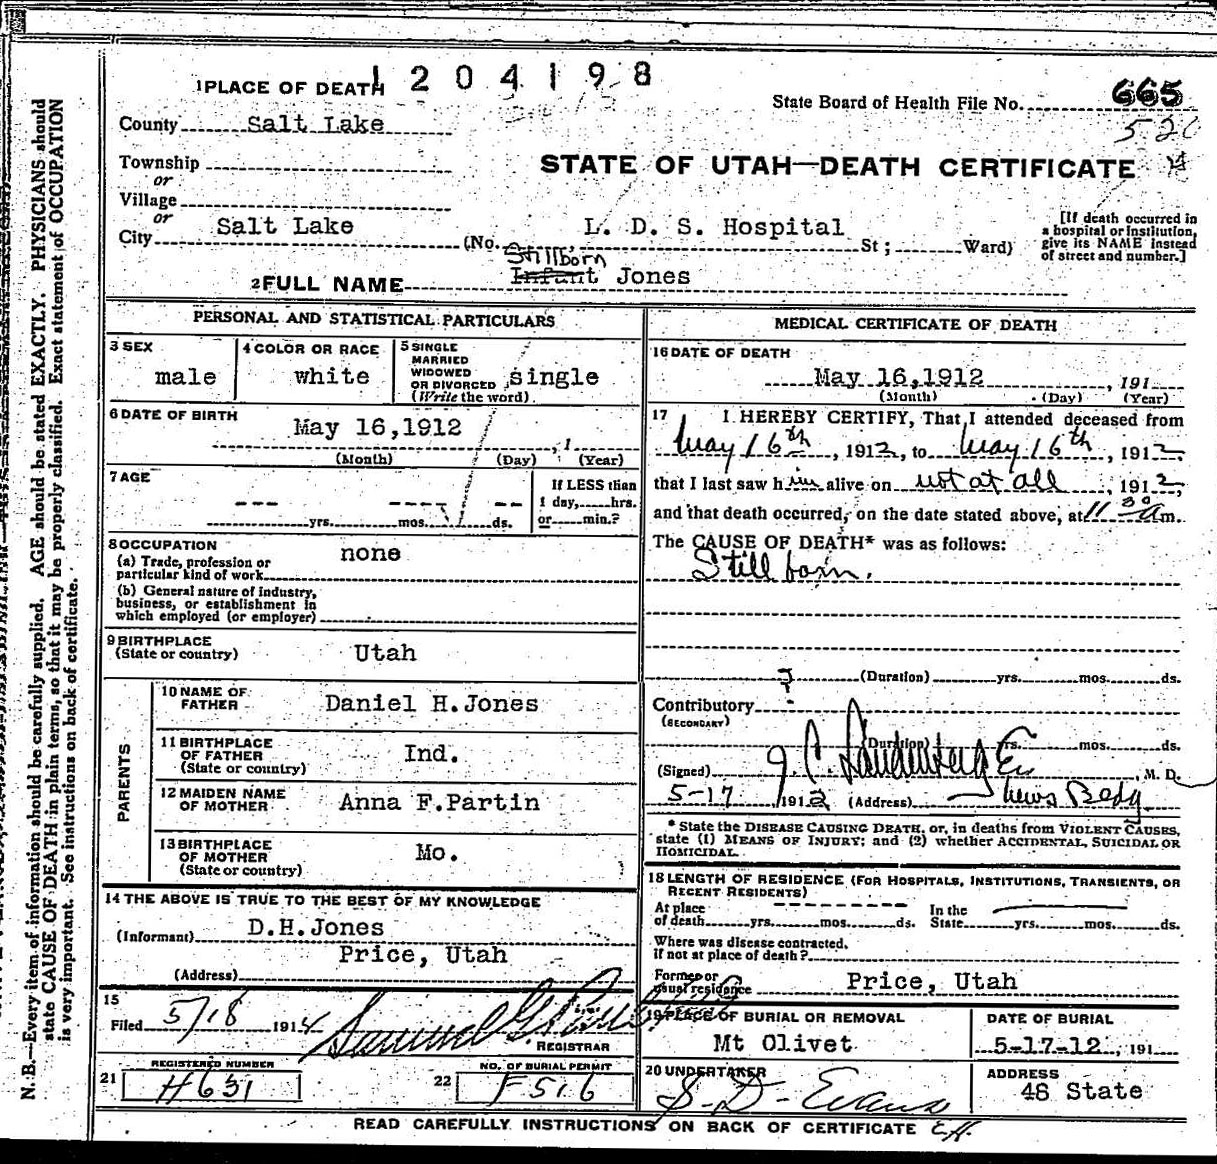 1204198
1 PLACE OF DEATH
State Board of Health File No. 665
County Salt Lake
Township
STATE OF UTAH—DEATH CERTIFICATE
or
Village
or
City Salt Lake (No. L. D. S. Hospital St; Ward)
[If death occurred in
a hospital or institution,
give its NAME instead
of street and number.]
Stillborn
2 FULL NAME Infant Jones
PERSONAL AND STATISTICAL PARTICULARS
3 SEX
male
4 COLOR OR RACE
white
5 SINGLE
MARRIED
WIDOWED
OR DIVORCED single
(Write the word)
6 DATE OF BIRTH
May 16,1912 , 1
(Month) (Day) (Year)
7 AGE
--- ---- --
yrs. mos. ds.
If LESS than
1 day, hrs.
or min.?
8 OCCUPATION none
(a) Trade, profession or
particular kind of work
(b) General nature of industry,
business, or establishment in
which employed (or employer)
9 BIRTHPLACE
(State or country) Utah
PARENTS
10 NAME OF
FATHER Daniel H.Jones
11 BIRTHPLACE
OF FATHER
(State or country) Ind.
12 MAIDEN NAME
OF MOTHER Anna F.Partin
13 BIRTHPLACE
OF MOTHER
(State or country) Mo.
14 THE ABOVE IS TRUE TO THE BEST OF MY KNOWLEDGE
(Informant) D.H.Jones
Price, Utah
(Address)
15
Filed 5/18 191 Samuel G
REGISTRAR
REGISTERED NUMBER
21 H631
NO. OF BURIAL PERMIT
22 F516
MEDICAL CERTIFICATE OF DEATH
16 DATE OF DEATH
May 16,1912 , 191
(Month) (Day) (Year)
17 I HEREBY CERTIFY, That I attended deceased from
May 16th, 1912, to May 16th, 1912,
that I last saw him alive on not at all, 1912,
and that death occurred, on the date stated above, at 11 30 a m.
The CAUSE OF DEATH* was as follows:
Still born.
? (Duration) yrs. mos. ds.
Contributory
(SECONDARY)
(Duration) yrs. mos. ds.
(Signed) , M. D.
5-17 1912 (Address) Bldg.
* State the DISEASE CAUSING DEATH, or, in deaths from VIOLENT CAUSES,
state (1) MEANS OF INJURY; and (2) whether ACCIDENTAL, SUICIDAL OR
HOMICIDAL.
18 LENGTH OF RESIDENCE (FOR HOSPITALS, INSTITUTIONS, TRANSIENTS, OR
RECENT RESIDENTS)
At place
of death yrs. mos. ds.
In the
State yrs. mos. ds.
Where was disease contracted,
if not at place of death?
Former or
usual residence Price, Utah
19 PLACE OF BURIAL OR REMOVAL
Mt Olivet
DATE OF BURIAL
5-17-12, 191
20 UNDERTAKER
S. D. Evans
ADDRESS
48 State
READ CAREFULLY INSTRUCTIONS ON BACK OF CERTIFICATE
N. B.—Every item of information should be carefully supplied. AGE should be stated EXACTLY. PHYSICIANS should
state CAUSE OF DEATH in plain terms, so that it may be properly classified. Exact statement of OCCUPATION
is very important. See instructions on back of certificate.